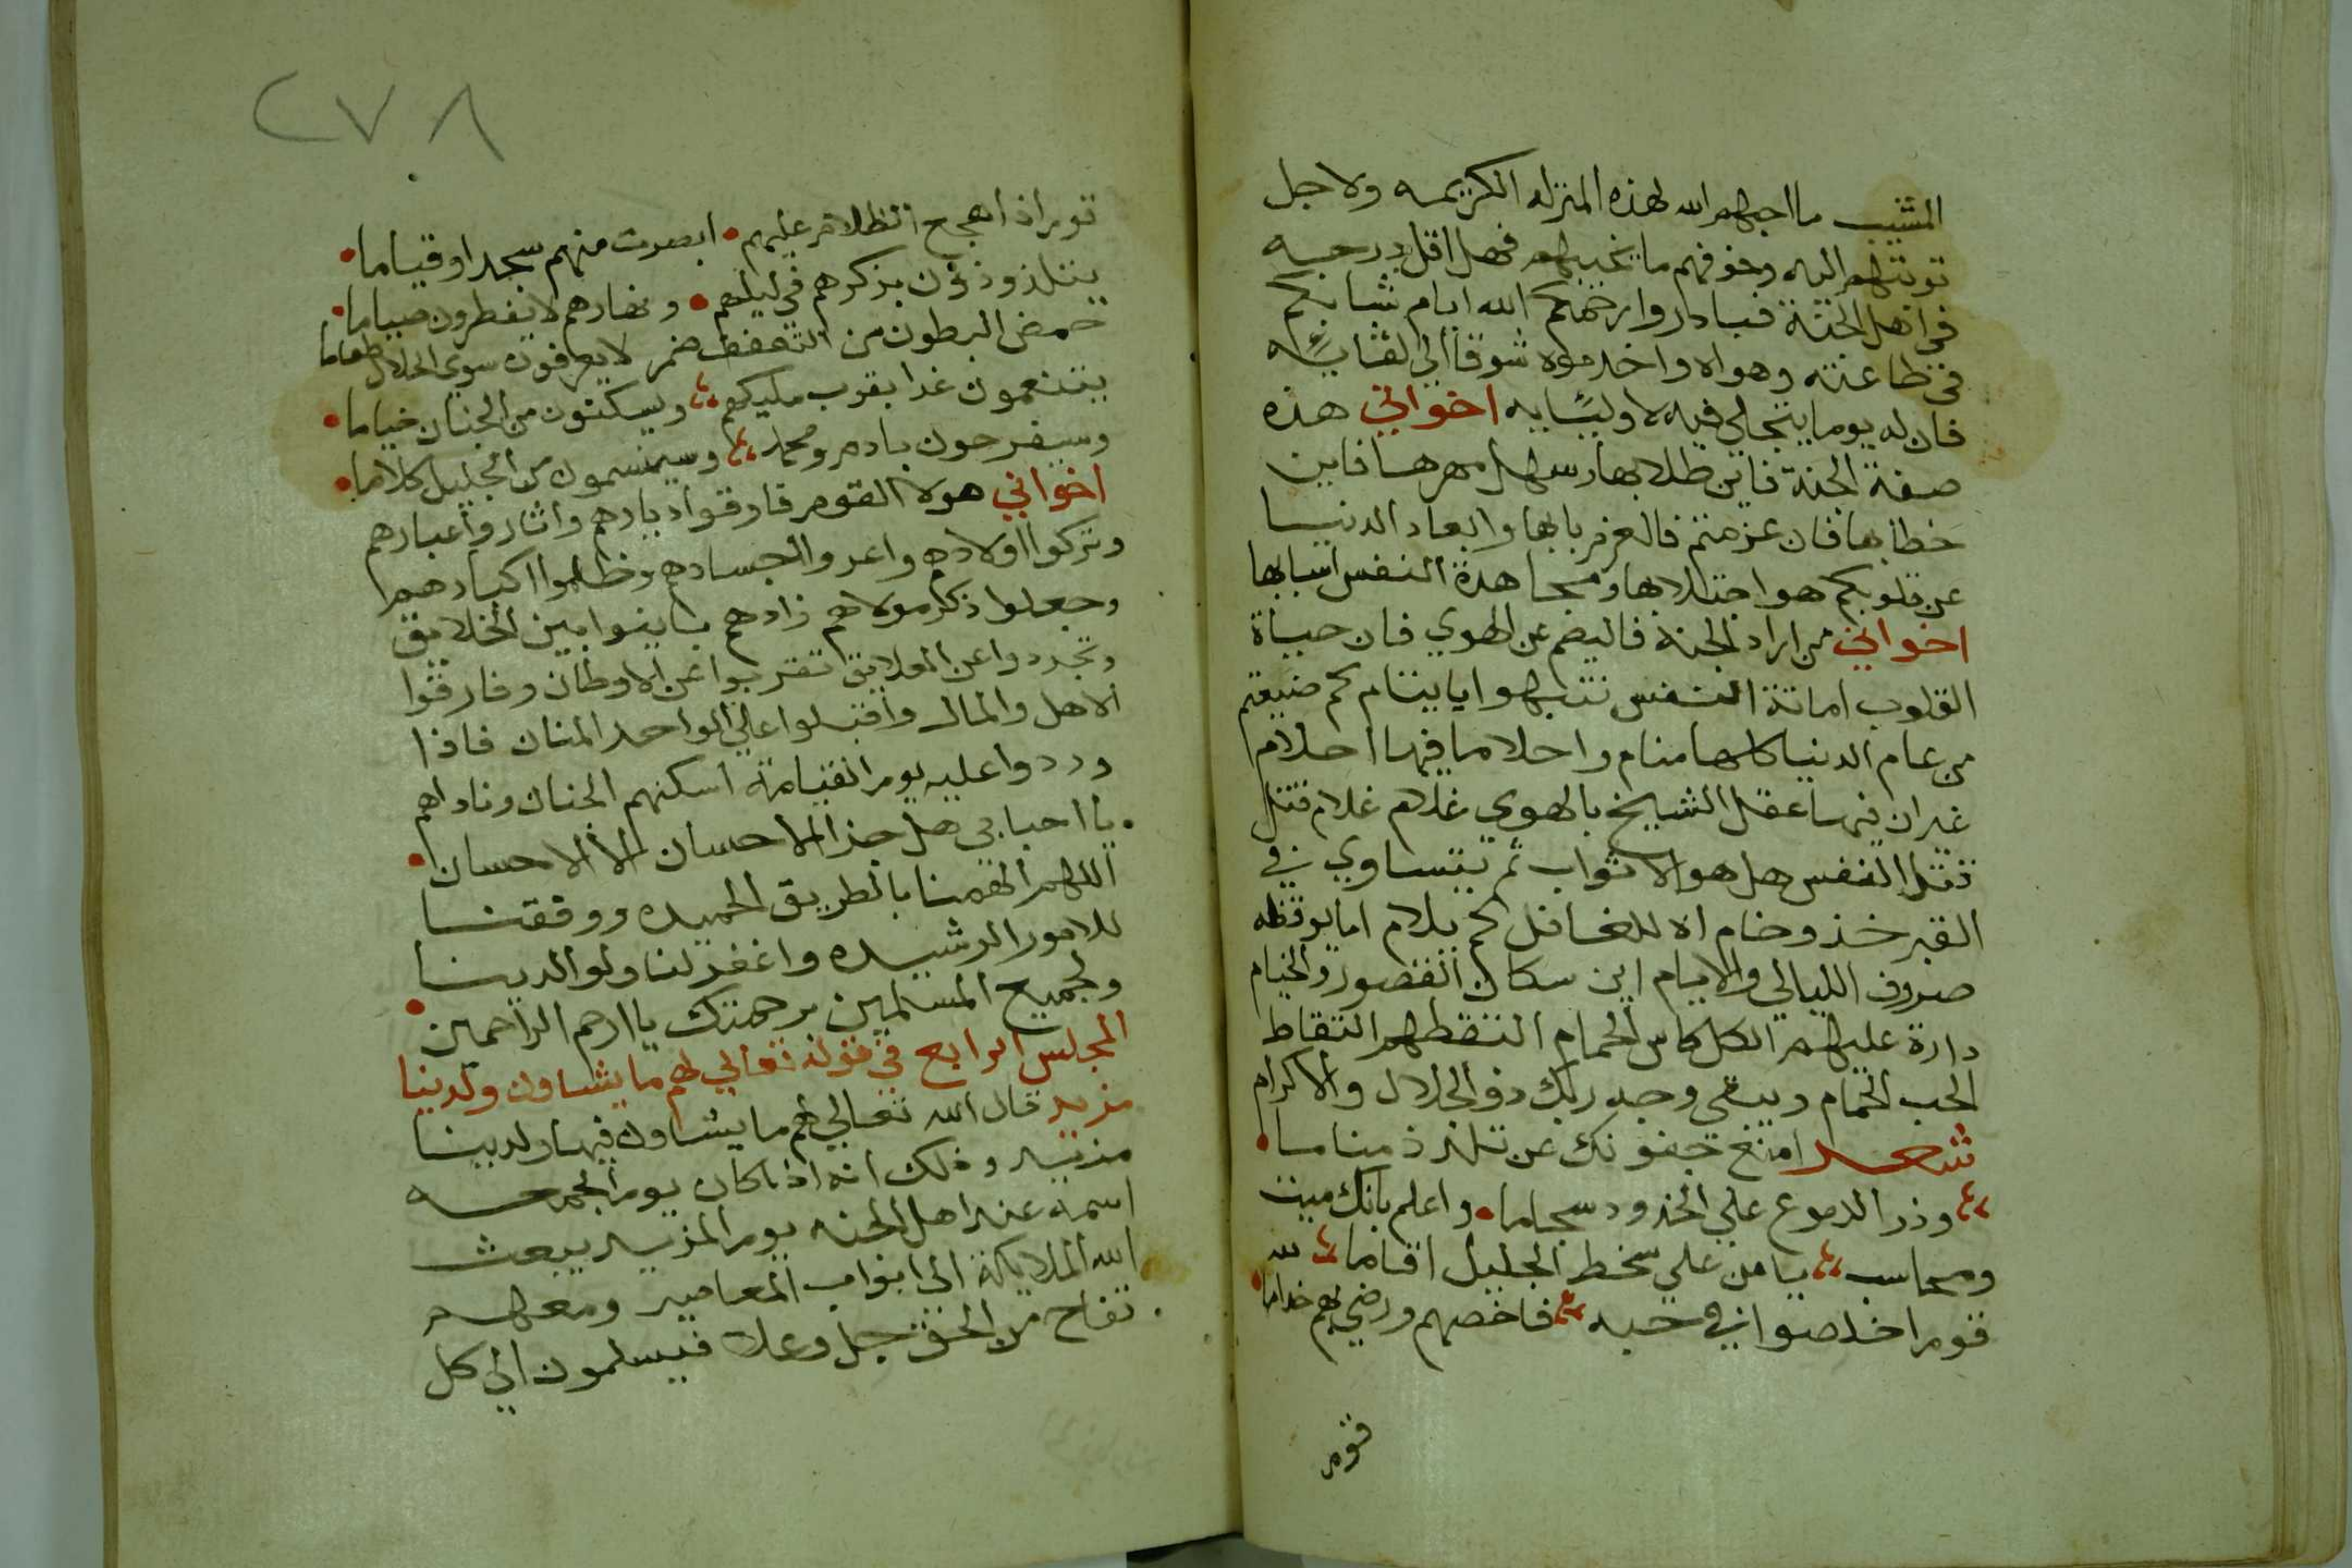 المشيب ما احبهم الله لهذه المنزله الكريمه ولاجل
توبتهم اليه وخوفهم ما يخيبهم فهل اقل درجه
في اهل الجنة فبادروا رحمكم الله ايام شبابكم
في طاعته وهواه واخدموه شوقا الي لقايه
فان له يوما يتجلي فيه لاوليايه اخواني هذه
صفة الجنة فاين طلابها وسهل مهرها فاين
خطابها فان عزمتم فالعزم بابها وابعاد الدنيا
عن قلوبكم هو اجتلابها ومجاهدة النفس اسبابها
اخواني من اراد الجنة فاليضم عن الهوي فان حياة
القلوب اماتة النفس تنبهوا يا ينام كم ضيعتم
من عام الدنيا كلها منام واحلا ما فيها احلام
غير ان فيها عقل الشيخ بالهوي غلام غلام قتل
قتل النفس هل هو الا ثواب ثم يتساوي في
القبر خذ وخام اه للغافل كم يلام اما يوقظه
صروف الليالي والايام اين سكان القصور والخيام
دارة عليهم الكل كاس الحمام التقطهم التقاط
الحب الحمام ويبقي وجه ربك ذو الجلال والاكرام
شعر امنع جفونك عن تلذذ مناما
وذر الدموع علي الخدود سجاما واعلم بانك ميت
ومحاسب يا من علي سخط الجليل اقاما لله
قوم اخلصوا في حبه فاخصهم ورضي بهم خداما
قوم
٢٧٨
قوم اذا هجع الظلام عليهم ابصرت منهم سجدا وقياما
يتلذوذون بذكرهم في ليلهم ونهارهم لا يفطرون صياما
خمض البطون من التعفف ضمر لا يعرفون سوي الحلال طعاما
يتنعمون غدا بقرب مليكهم ويسكنون من الجنان خياما
وسيفرحون بادم ومحمد وسيسمون من الجليل كلاما
اخواني هولا القوم فارقوا ديارهم واثار واعبارهم
وتركوا اولادهم واعروا اجسادهم وظلموا اكبادهم
وجعلوا ذكر مولاهم زادهم باينوا بين الخلايق
وتجردوا عن العلايق تقربوا عن الاوطان وفارقوا
الاهل والمال واقبلوا علي الواحد المنان فاذا
وردوا عليه يوم القيامة اسكنهم الجنان وناداهم
يا احبابي هل جزا الاحسان الا الاحسان
اللهم الهمنا بالطريق الحميده ووفقنا
للامور الرشيده واغفر لنا ولوالدينا
ولجميع المسلمين برحمتك يا ارحم الراحمين
المجلس الرابع في قوله تعالي لهم ما يشاون ولدينا
مزيد قال الله تعالي لهم ما يشاون فيها ولدينا
مزيد وذلك انه اذا كان يوم الجمعه
اسمه عند اهل الجنه يوم المزيد يبعث
الله الملايكة الي ابواب المعاصير ومعهم
تفاح من الحق جل وعلا فيسلمون الي كل